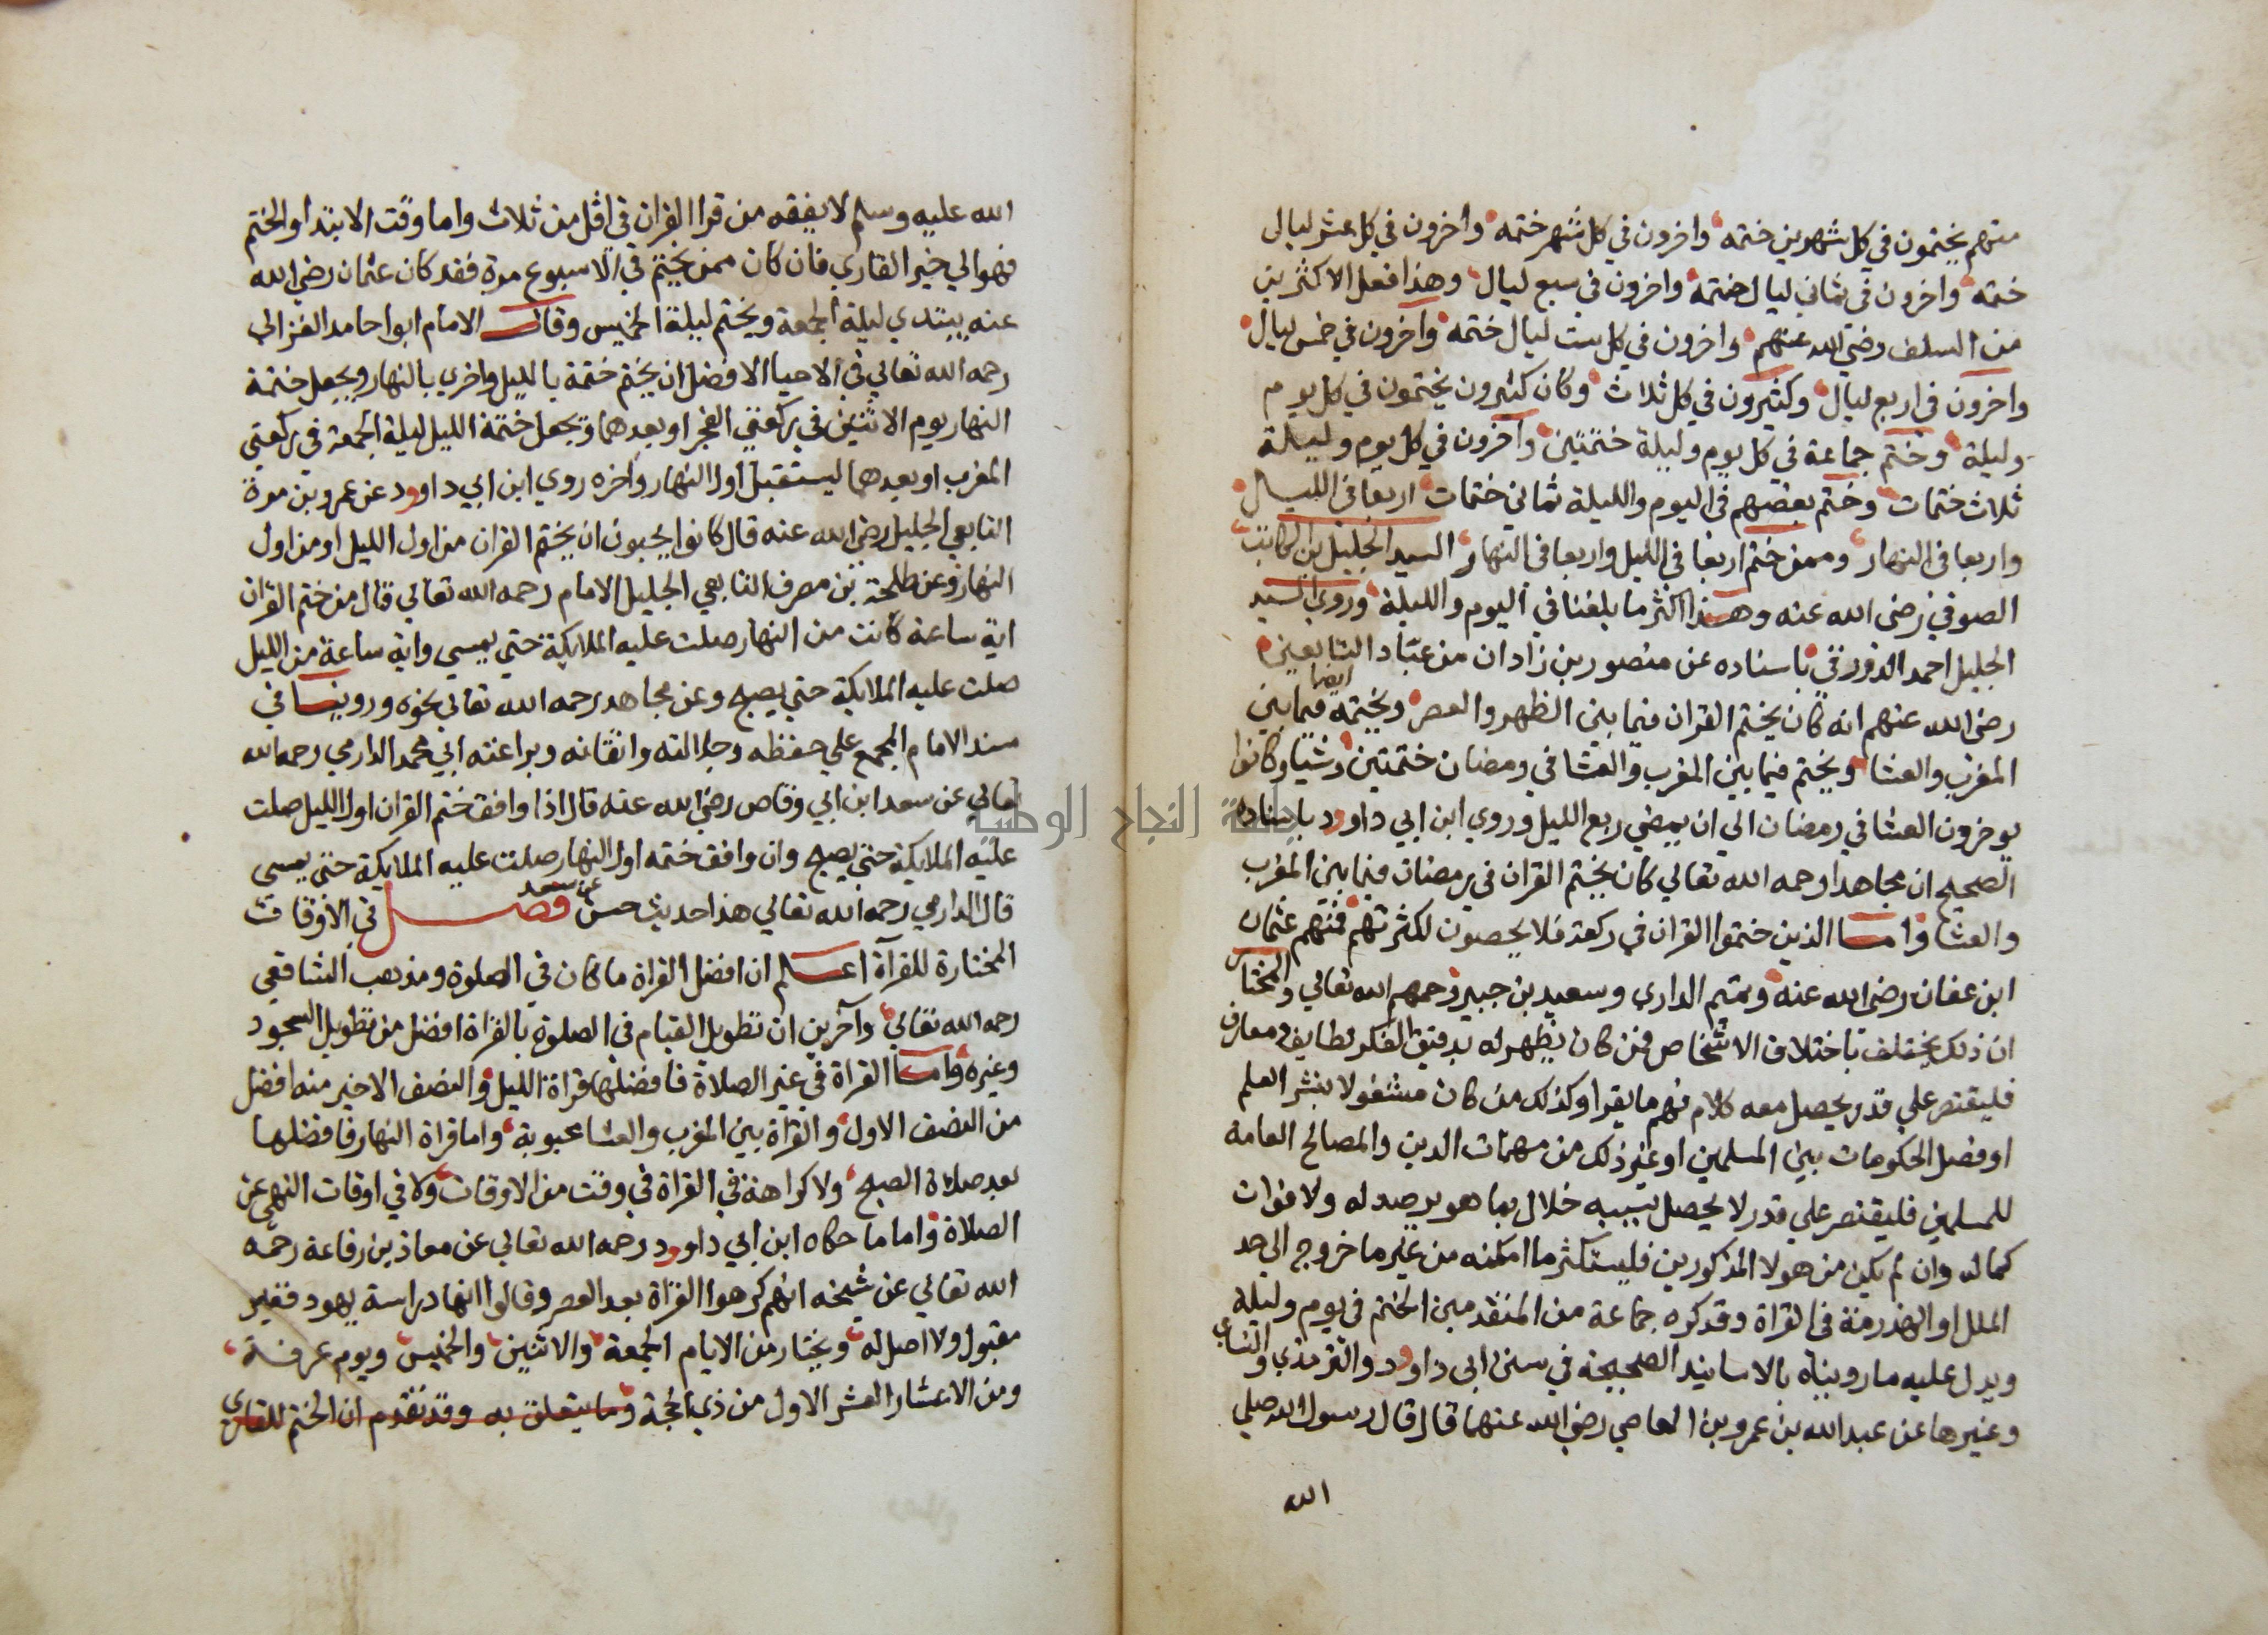 منهم يختمون في كل شهرين ختمه واخرون في كل شهر ختمه واخرون في كل عشر ليالى
ختمه واخرون في ثماني ليال ختمة واخرون في سبع ليال وهذا فعل الاكثرين
من السلف رضي الله عنهم واخرون في كل ست ليال ختمة واخرون في خمس ليال
واخرون في اربع ليال وكثيرون في كل ثلاث وكان كثيرون يختمون في كل يوم
وليلة وختم جماعة في كل يوم وليلة ختمتين وآخرون في كل يوم وليلة
ثلاث ختمات وختم بعضهم في اليوم والليلة ثماني ختمات اربعا في الليل
واربعا في النهار وممن ختم اربعا في الليل واربعا في النهار السيد الجليل بن الكاتب
الصوفي رضى الله عنه وهذا اكثر ما بلغنا في اليوم والليلة وروي السيد
الجليل احمد الدورقي باسناده عن منصور بن زادان من عبّاد التابعين
رضى الله عنهم انه كان يختم القران فيما بين الظهر والعصر ويختمه ايضا فيما بين
المغرب والعشا ويختم فيما بين المغرب والعشا في رمضان ختمتين وشيا وكانوا
يوخرون العشا في رمضان الى ان يمضي ربع الليل وروي ابن ابي داوود باسناده
الصحيح ان مجاهدا رحمه الله تعالي كان يختم القران في رمضان فيما بين المغرب
والعشا واما الذين ختموا القران في ركعة فلا يحصون لكثرتهم فمنهم عثمان
ابن عفان رضي الله عنه وتميم الداري وسعيد بن جبير رحمهم الله تعالي والمختار
ان ذلك يختلف باختلاف الاشخاص فمن كان يظهر له بدقيق الفكر لطايف ومعارف
فليقتصر علي قدر يحصل معه كلام فهم ما يقرا وكذلك من كان مشغولا بنشر العلم
او فصل الحكومات بين المسلمين او غير ذلك من مهمات الدين والمصالح العامة
للمسلمين فليقتصر علي قدر لا يحصل بسببه خلال بما هو مرصد له ولا فوات
كماله وان لم يكن من هولا المذكورين فليستكثر ما امكنه من غير ما خروج الى حد
الملل او الهذرمة في القراة وقد كره جماعة من المتقدمين الختم في يوم وليلة
ويدل عليه ما رويناه بالاسانيد الصحيحة في سنن ابى داوود والترمذي والنساي
وغيرها عن عبد الله بن عمرو بن العاصي رضي الله عنهما قال قال رسول الله صلي
الله
الله عليه وسلم لا يفقه من قرا القران في اقل من ثلاث واما وقت الابتدا والختم
فهو الي خير القاري فان كان ممن يختم في الاسبوع مرة فقد كان عثمان رضي الله
عنه يبتدي ليلة الجمعة ويختم ليلة الخميس وقال الامام ابوا حامد الغزالى
رحمه الله تعالي في الاحيا الافضل ان يختم ختمة بالليل واخري بالنهار ويجعل ختمة
النهار يوم الاثنين في ركعتي الفجر او بعدهما ويجعل ختمة الليل ليلة الجمعة في ركعتي
المغرب او بعدهما ليستقبل اول النهار وآخره روي ابن ابي داوود عن عمرو بن مرة
التابعي الجليل رضي الله عنه قال كانوا يحبون ان يختم القران من اول الليل او من اول
النهار وعن طلحة بن مصرف التابعي الجليل الامام رحمه الله تعالي قال من ختم القران
اية ساعة كانت من النهار صلت عليه الملايكة حتي يمسي واية ساعة من الليل
صلت عليه الملايكة حتي يصبح وعن مجاهد رحمه الله تعالي نحوه وروينا في
مسند الامام المجمع علي حفظه وجلالته واتقانه وبراعته ابي محمد الدارمي رحمه الله
تعالي عن سعد ابن ابي وقاص رضي الله عنه قال اذا وافق ختم القران اول الليل صلت
عليه الملايكة حتي يصبح وان وافق ختمه اول النهار صلت عليه الملايكة حتي يمسي
قال الدارمي رحمه الله تعالي هذا حديث حسن عن سعد فصل في الاوقات
المختارة للقرآة اعلم ان افضل القراة ما كان في الصلوة ومذهب الشافعي
رحمه الله تعالي وآخرين ان تطويل القيام في الصلوة بالقراة افضل من تطويل السجود
وغيره واما القراة في غير الصلاة فافضلها قراة الليل والنصف الاخير منه افضل
من النصف الاول والقراة بين المغرب والعشا محبوبة واما قراة النهار فافضلها
بعد صلاة الصبح ولا كراهة في القراة في وقت من الاوقات ولا في اوقات النهي عن
الصلاة واما ما حكاه ابن ابي داوود رحمه الله تعالي عن معاذ بن رفاعة رحمه
الله تعالي عن شيخه انهم كرهوا القراة بعد العصر وقالوا انها دراسة يهود فغير
مقبول ولا اصل له ويختار من الايام الجمعة والاثنين والخميس ويوم عرفة
ومن الاعشار العشر الاول من ذي الحجة وما يتعلق به وقد تقدم ان الختم للقاري
جامعة النجاح الوطنية